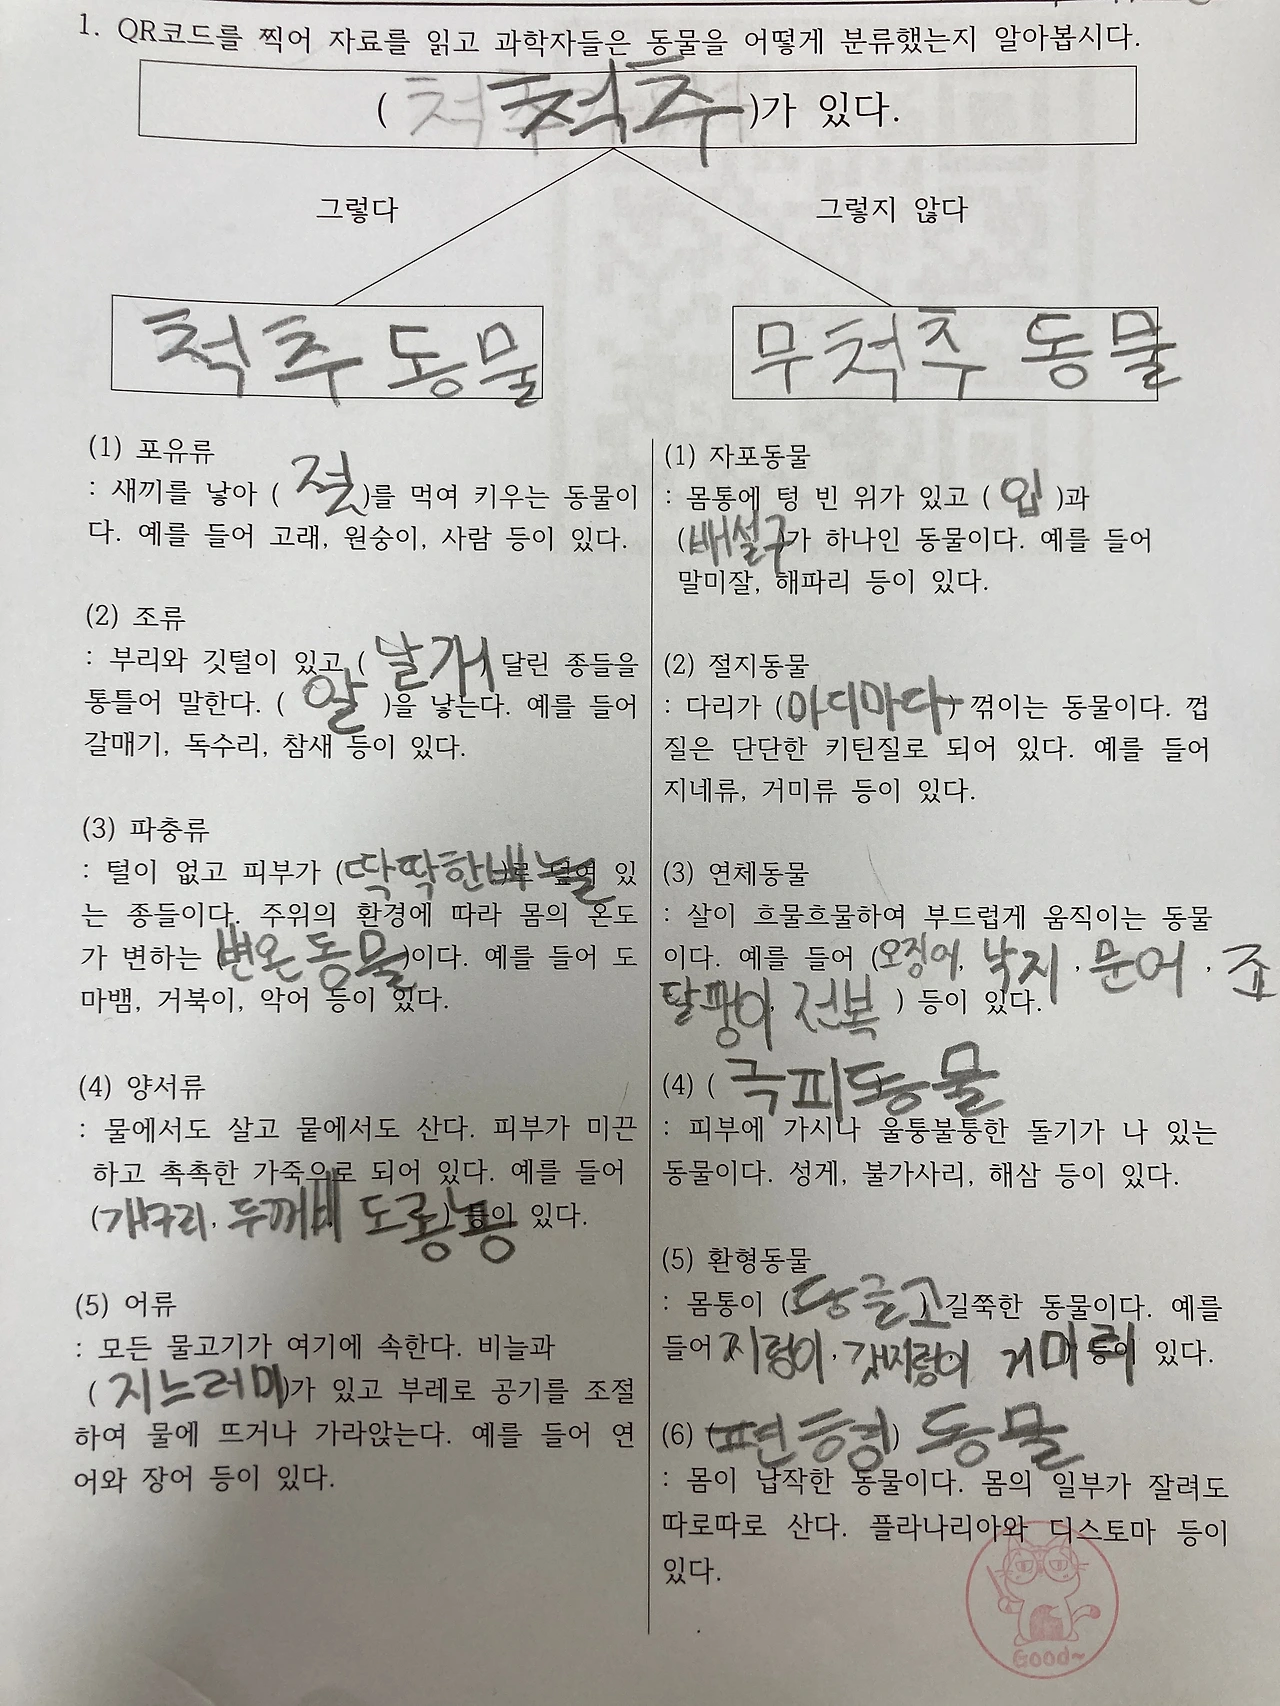 1. QR코드를 찍어 자료를 읽고 과학자들은 동물을 어떻게 분류했는지 알아봅시다.
( 척추 )가 있다.
그렇다
그렇지 않다
척추 동물
무척추 동물
(1) 포유류
: 새끼를 낳아 ( 젖 )를 먹여 키우는 동물이
다. 예를 들어 고래, 원숭이, 사람 등이 있다.
(2) 조류
: 부리와 깃털이 있고 ( 날개 달린 종들을
통틀어 말한다. ( 알 )을 낳는다. 예를 들어
갈매기, 독수리, 참새 등이 있다.
(3) 파충류
: 털이 없고 피부가 (딱딱한비늘)로 덮여 있
는 종들이다. 주위의 환경에 따라 몸의 온도
가 변하는 (변온동물)이다. 예를 들어 도
마뱀, 거북이, 악어 등이 있다.
(4) 양서류
: 물에서도 살고 뭍에서도 산다. 피부가 미끈
하고 촉촉한 가죽으로 되어 있다. 예를 들어
(개구리, 두꺼비 도롱뇽) 등이 있다.
(5) 어류
: 모든 물고기가 여기에 속한다. 비늘과
( 지느러미)가 있고 부레로 공기를 조절
하여 물에 뜨거나 가라앉는다. 예를 들어 연
어와 장어 등이 있다.
(1) 자포동물
: 몸통에 텅 빈 위가 있고 ( 입 )과
(배설구)가 하나인 동물이다. 예를 들어
말미잘, 해파리 등이 있다.
(2) 절지동물
: 다리가 (마디마다) 꺾이는 동물이다. 껍
질은 단단한 키틴질로 되어 있다. 예를 들어
지네류, 거미류 등이 있다.
(3) 연체동물
: 살이 흐물흐물하여 부드럽게 움직이는 동물
이다. 예를 들어 (오징어, 낙지, 문어, 조
달팽이, 전복 ) 등이 있다.
(4) ( 극피동물
: 피부에 가시나 울퉁불퉁한 돌기가 나 있는
동물이다. 성게, 불가사리, 해삼 등이 있다.
(5) 환형동물
: 몸통이 (둥글고) 길쭉한 동물이다. 예를
들어 지렁이, 갯지렁이 거머리 등이 있다.
(6) (편형) 동물
: 몸이 납작한 동물이다. 몸의 일부가 잘려도
따로따로 산다. 플라나리아와 디스토마 등이
있다.
Good~